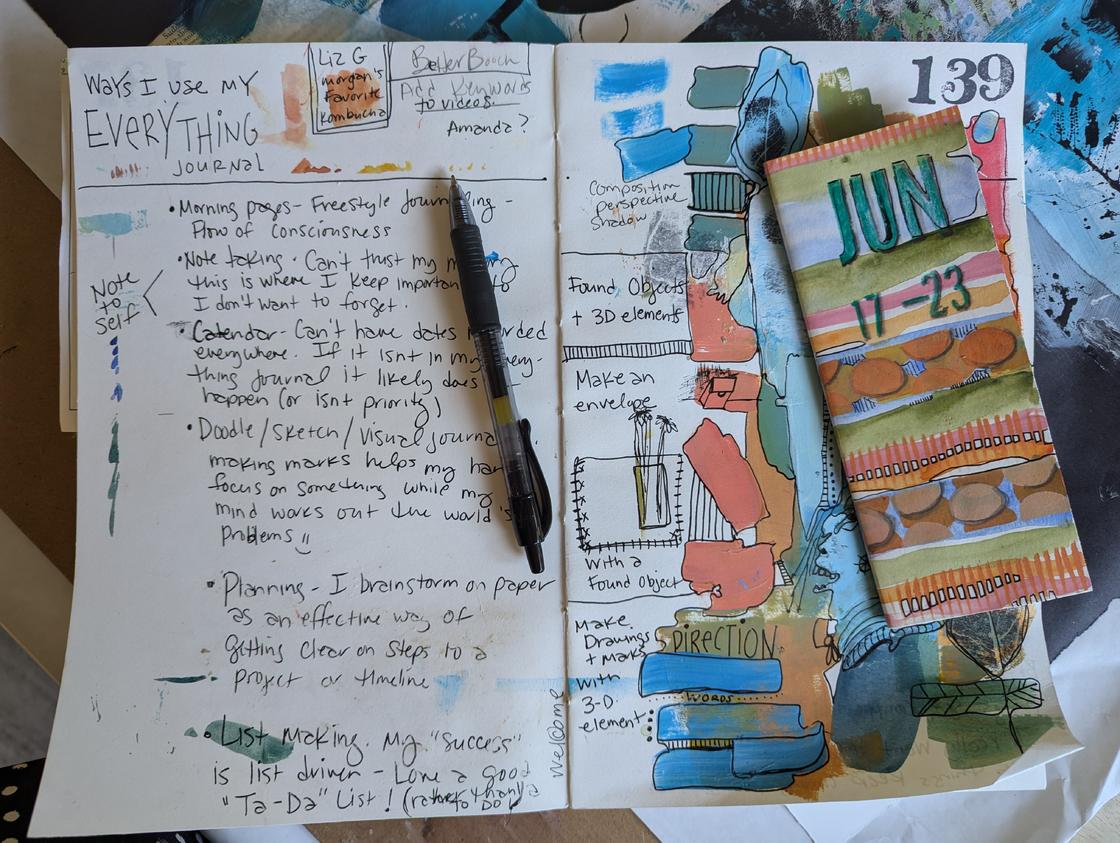 Ways I use my
Everything
Journal
Liz G
morgan's
Favorite
Kombucha
Better Booch
Add Keywords
to videos.
Amanda?
• Morning pages - Freestyle Journaling -
Flow of Consciousness
Note
to
Self
• Note taking - Can't trust my
this is where I keep
I don't want to forget.
Calendar - Can't have dates
everywhere. If it isnt in my every-
thing Journal it likely
happen (or isnt priority)
• Doodle/Sketch/visual
making marks helps my
focus on something while my
mind works out the world's
Problems
• Planning - I brainstorm on paper
as an effective way of
getting clear on steps to a
project or timeline
• List Making. My "success"
is list driven - Love a good
"Ta-Da" List! (rather than a
to Do)
139
Composition
perspective
Shadow
Found Objects
+ 3D elements
Make an
envelope
with a
Found Object
Make
Drawings
+ Marks
with
3-D
element
DIRECTION
WORDS
JUN
17-23